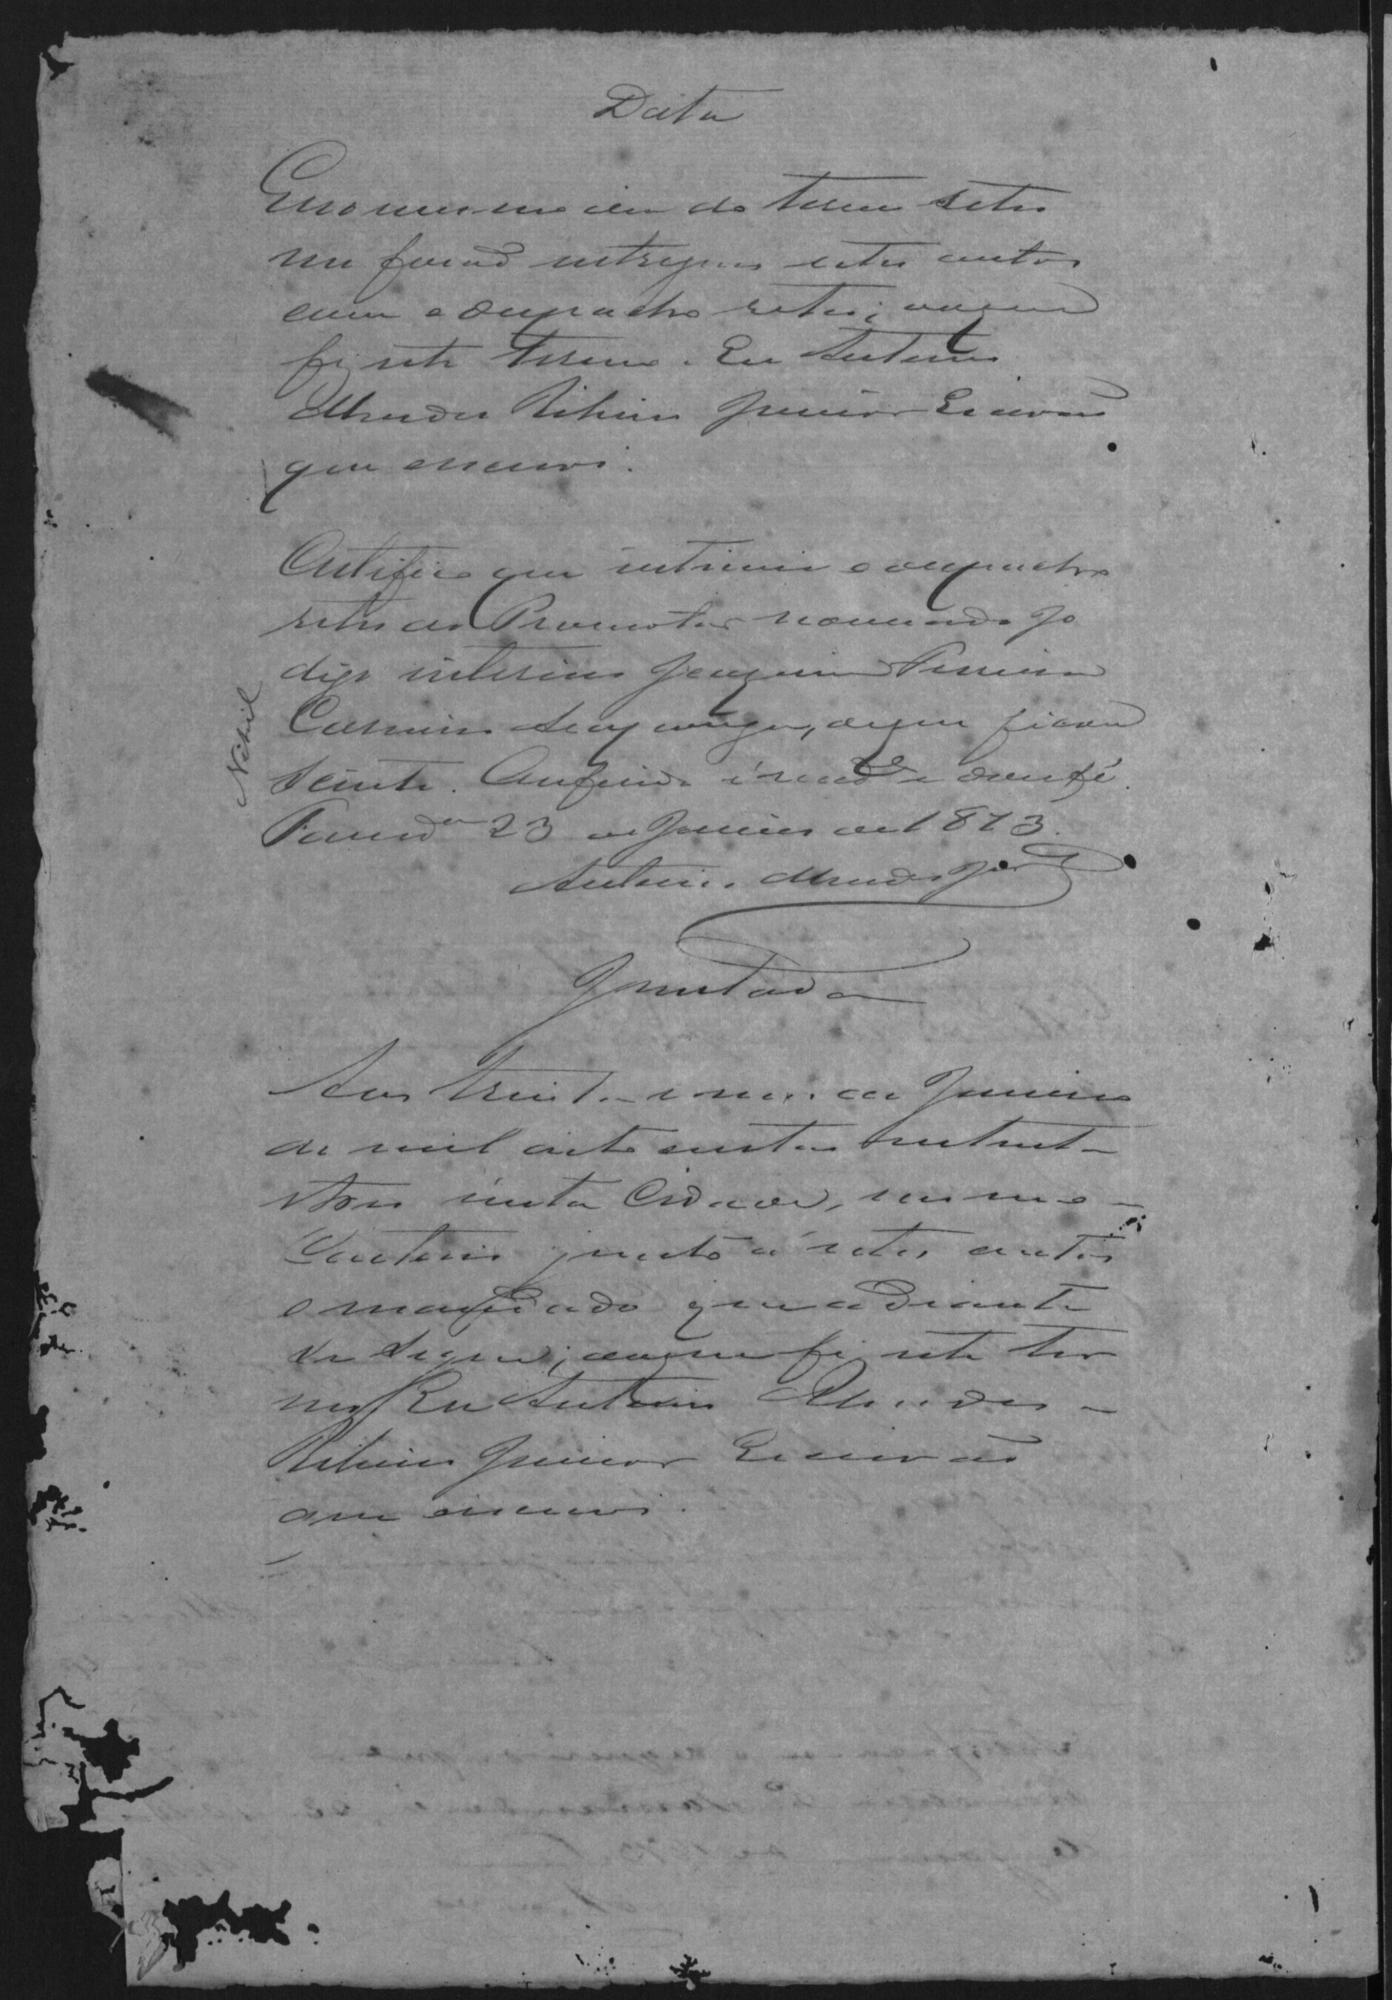 Data
Em o mesmo dia do termo retro
me forão entregues estes autos
com o despacho retro; do que
fiz este termo. Eu Antonio
Mendes Ribeiro Junior Escrivão
que escrevi.
Certifico que intimei o despacho
retro ao Promotor nomeado Jo
digo interino Joaquim Pereira
a quem ficou
sciente. O referido é verdade e dou fé.
23 de Janeiro de 1873.
Antonio Mendes Jor
Juntada
Aos trinta e um de Janeiro
de mil oito centos setenta
e tres nesta Cidade, em meo
Cartorio junto a estes autos
o mandado que adiante
se segue; do que fiz este ter
mo. Eu Antonio Mendes
Ribeiro Junior Escrivão
que escrevi.